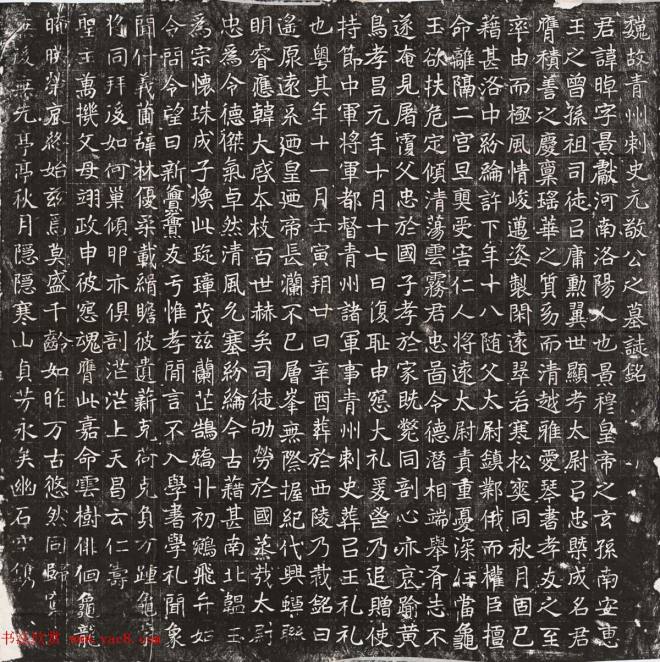 魏故青州刺史元敬公之墓誌銘
君諱暐字景獻河南洛陽人也景穆皇帝之玄孫南安惠
王之曾孫祖司徒㠯庸勳翼世顯考太尉㠯忠槩成名君
膺積善之慶稟瑤華之質易而清越雅愛琴書孝友之至
率由而極風情峻邁姿製閑遠翠若寒松奭同秋月固已
藉甚洛中紛綸許下年十八随父太尉鎮鄴俄而權臣擅
命離隔二宫旦奭受害仁人將遠太尉責重憂深任當龜
玉欲扶危定傾清蕩雲霧君忠啚令德潛相端舉脊志不
遂奄見屠覆父忠於國子孝於家既斃同剖心亦哀踰黄
鳥孝昌元年十月十七日復耻申寃大礼爰登乃追贈使
持節中軍將軍都督青州諸軍事青州刺史葬㠯王礼礼
也粤其年十一月壬寅朔廿日辛酉葬於西陵乃裁銘曰
遥原遠系迺皇迺帝長瀾不已層峯無際握紀代興蟬聯
明睿應韓大啓本枝百世赫矣司徒劬勞於國烝哉太尉
忠為令德傑氣卓然清風允塞紛綸今古藉甚南北韞玉
為宗懷珠成子煥此琁璋茂兹蘭芷鵠鷮丱初鵷飛弁始
令問令望日新亹亹友于惟孝閒言不入學書學礼聞象
聞什義菌辞林優柔載緝瞻彼遺薪克荷克負方踵龜
將同拜後如何巢傾卵亦俱剖茫茫上天曷云仁壽
聖主萬撲父母翊政申彼寃魂膺此嘉命雲樹俳徊龜龍
晻映榮哀終始兹焉莫盛千齡如昨万古悠然同歸
後無先亭亭秋月隠隠寒山貞芳永矣幽石